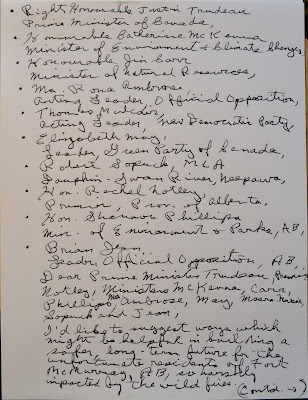 • Right Honourable Justin Trudeau
Prime Minister of Canada,
• Honourable Catherine McKenna
Minister of Environment & Climate Change,
• Honourable Jim Carr
Minister of Natural Resources,
• Ms. Rona Ambrose,
Acting Leader, Official Opposition,
• Thomas Mulcair
Acting Leader, New Democratic Party,
• Elizabeth May,
Leader, Green Party of Canada,
• Robert Sopuck, MLA
Dauphin-Swan River, Neepawa,
• Hon. Rachel Notley,
Premier, Prov. of Alberta,
• Hon. Shannon Phillips
Min. of Environment & Parks, AB,
• Brian Jean
Leader Official Opposition, AB,
Dear Prime Minister Trudeau, Premier
Notley, Ministers McKenna, Carr,
Phillips, Ms Ambrose, May, Messrs
Sopuck and Jean,
I'd like to suggest ways which
might be helpful in building a
safer, long-term future for the
unfortunate residents of Fort
McMurray, AB, so harshly
impacted by the wild fires.
(contd. →)